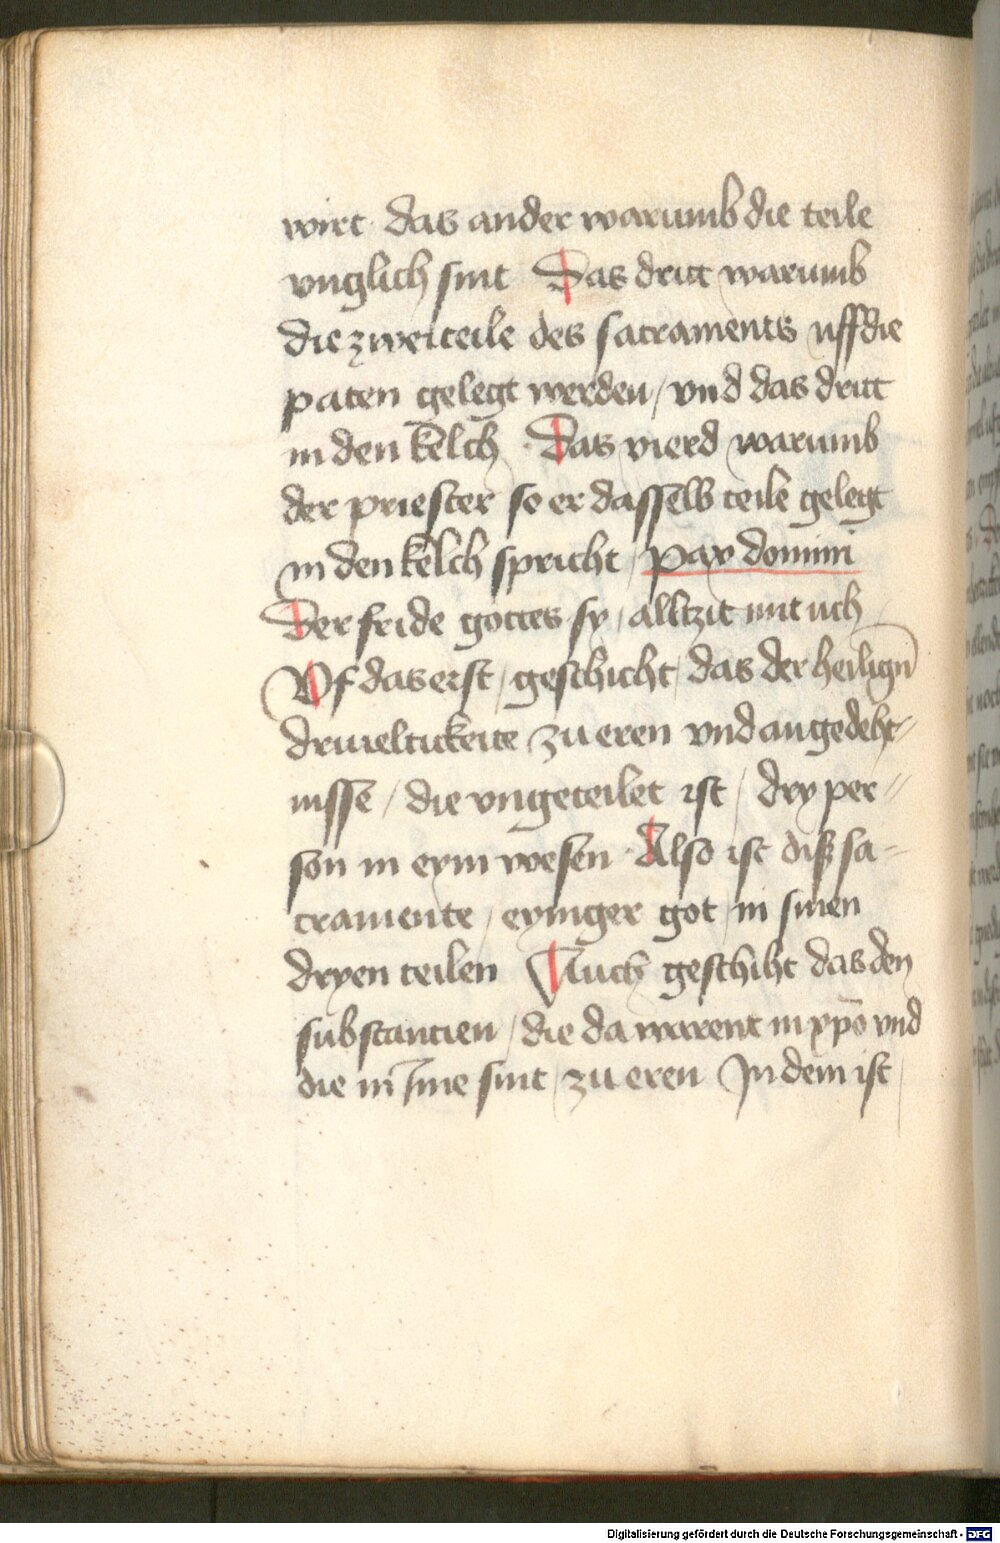 wirt · das ander warumb die teile
vnglich sint Das dritt warumb
die zwei teile des sacraments uff die
paten gelegt werden / vnd das dritt
in den kelch · Das vierd warumb
der priester so er dasselb teile gelegt
in den kelch spricht / pax domini
Der fride gottes sy / alltzit mit uch
Vf das erst / geschicht / das der heiligen̄
driueltickeite zu eren vnd angedeht⸗
nisse / die vngeteilet ist / dry per⸗
son in eym wesen · Also ist disz sa⸗
cramente / eyniger got / in sinen
dryen teilen Auch geschiht das den
substantien / die da warent in xp̄o vnd
die in Ime sint / zu eren In dem ist /
Digitalisierung gefördert durch die Deutsche Forschungsgemeinschaft - DFG